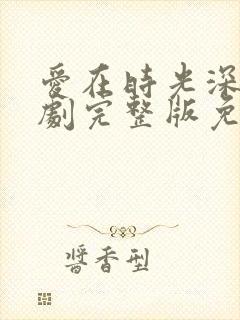 愛在時光深
劇完整版免
醬香型